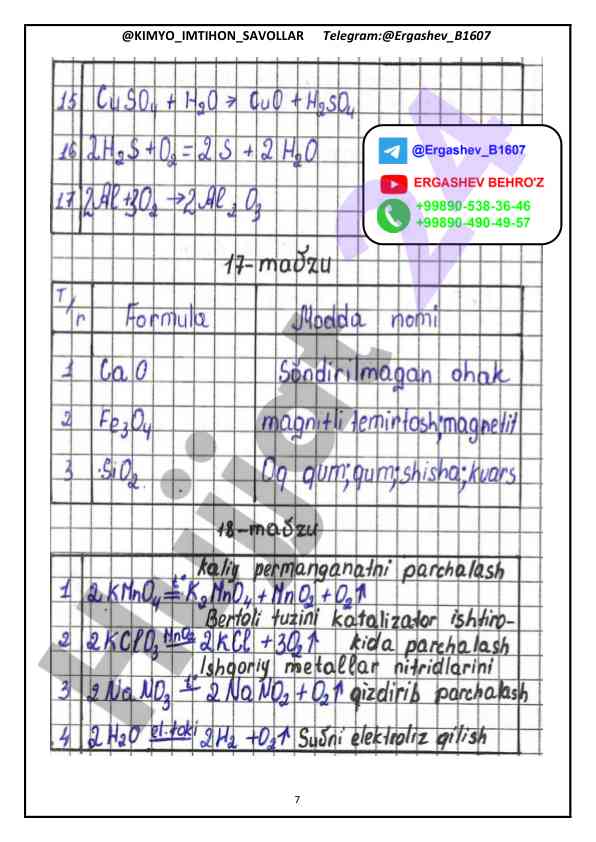 @KIMYO_IMTIHON_SAVOLLAR Telegram:@Ergashev_B1607
15 CuSO₄ + H₂O → CuO + H₂SO₄
16 2H₂S + O₂ = 2S + 2H₂O
17 2Al+3O₂ → 2Al₂O₃
@Ergashev_B1607
ERGASHEV BEHRO'Z
+99890-538-36-46
+99890-490-49-57
17-mavzu
T/r Formula Modda nomi
1 CaO Söndirilmagan ohak
2 Fe₃O₄ magnitli temirtosh;magnetit
3 SiO₂ Oq qum;qum;shisha;kvars
18-mavzu
kaliy permanganatni parchalash
1 2KMnO₄ =t°= K₂MnO₄ + MnO₂ + O₂↑
Bertoli tuzini katalizator ishtiro-
2 2KClO₃ MnO₂ 2KCl + 3O₂↑ kida parchalash
Ishqoriy metallar nitridlarini
3 2NaNO₃ t° 2NaNO₂ + O₂↑ qizdirib parchalash
4 2H₂O el.toki 2H₂ + O₂↑ Suvni elektroliz qilish
Hujjat 24
7